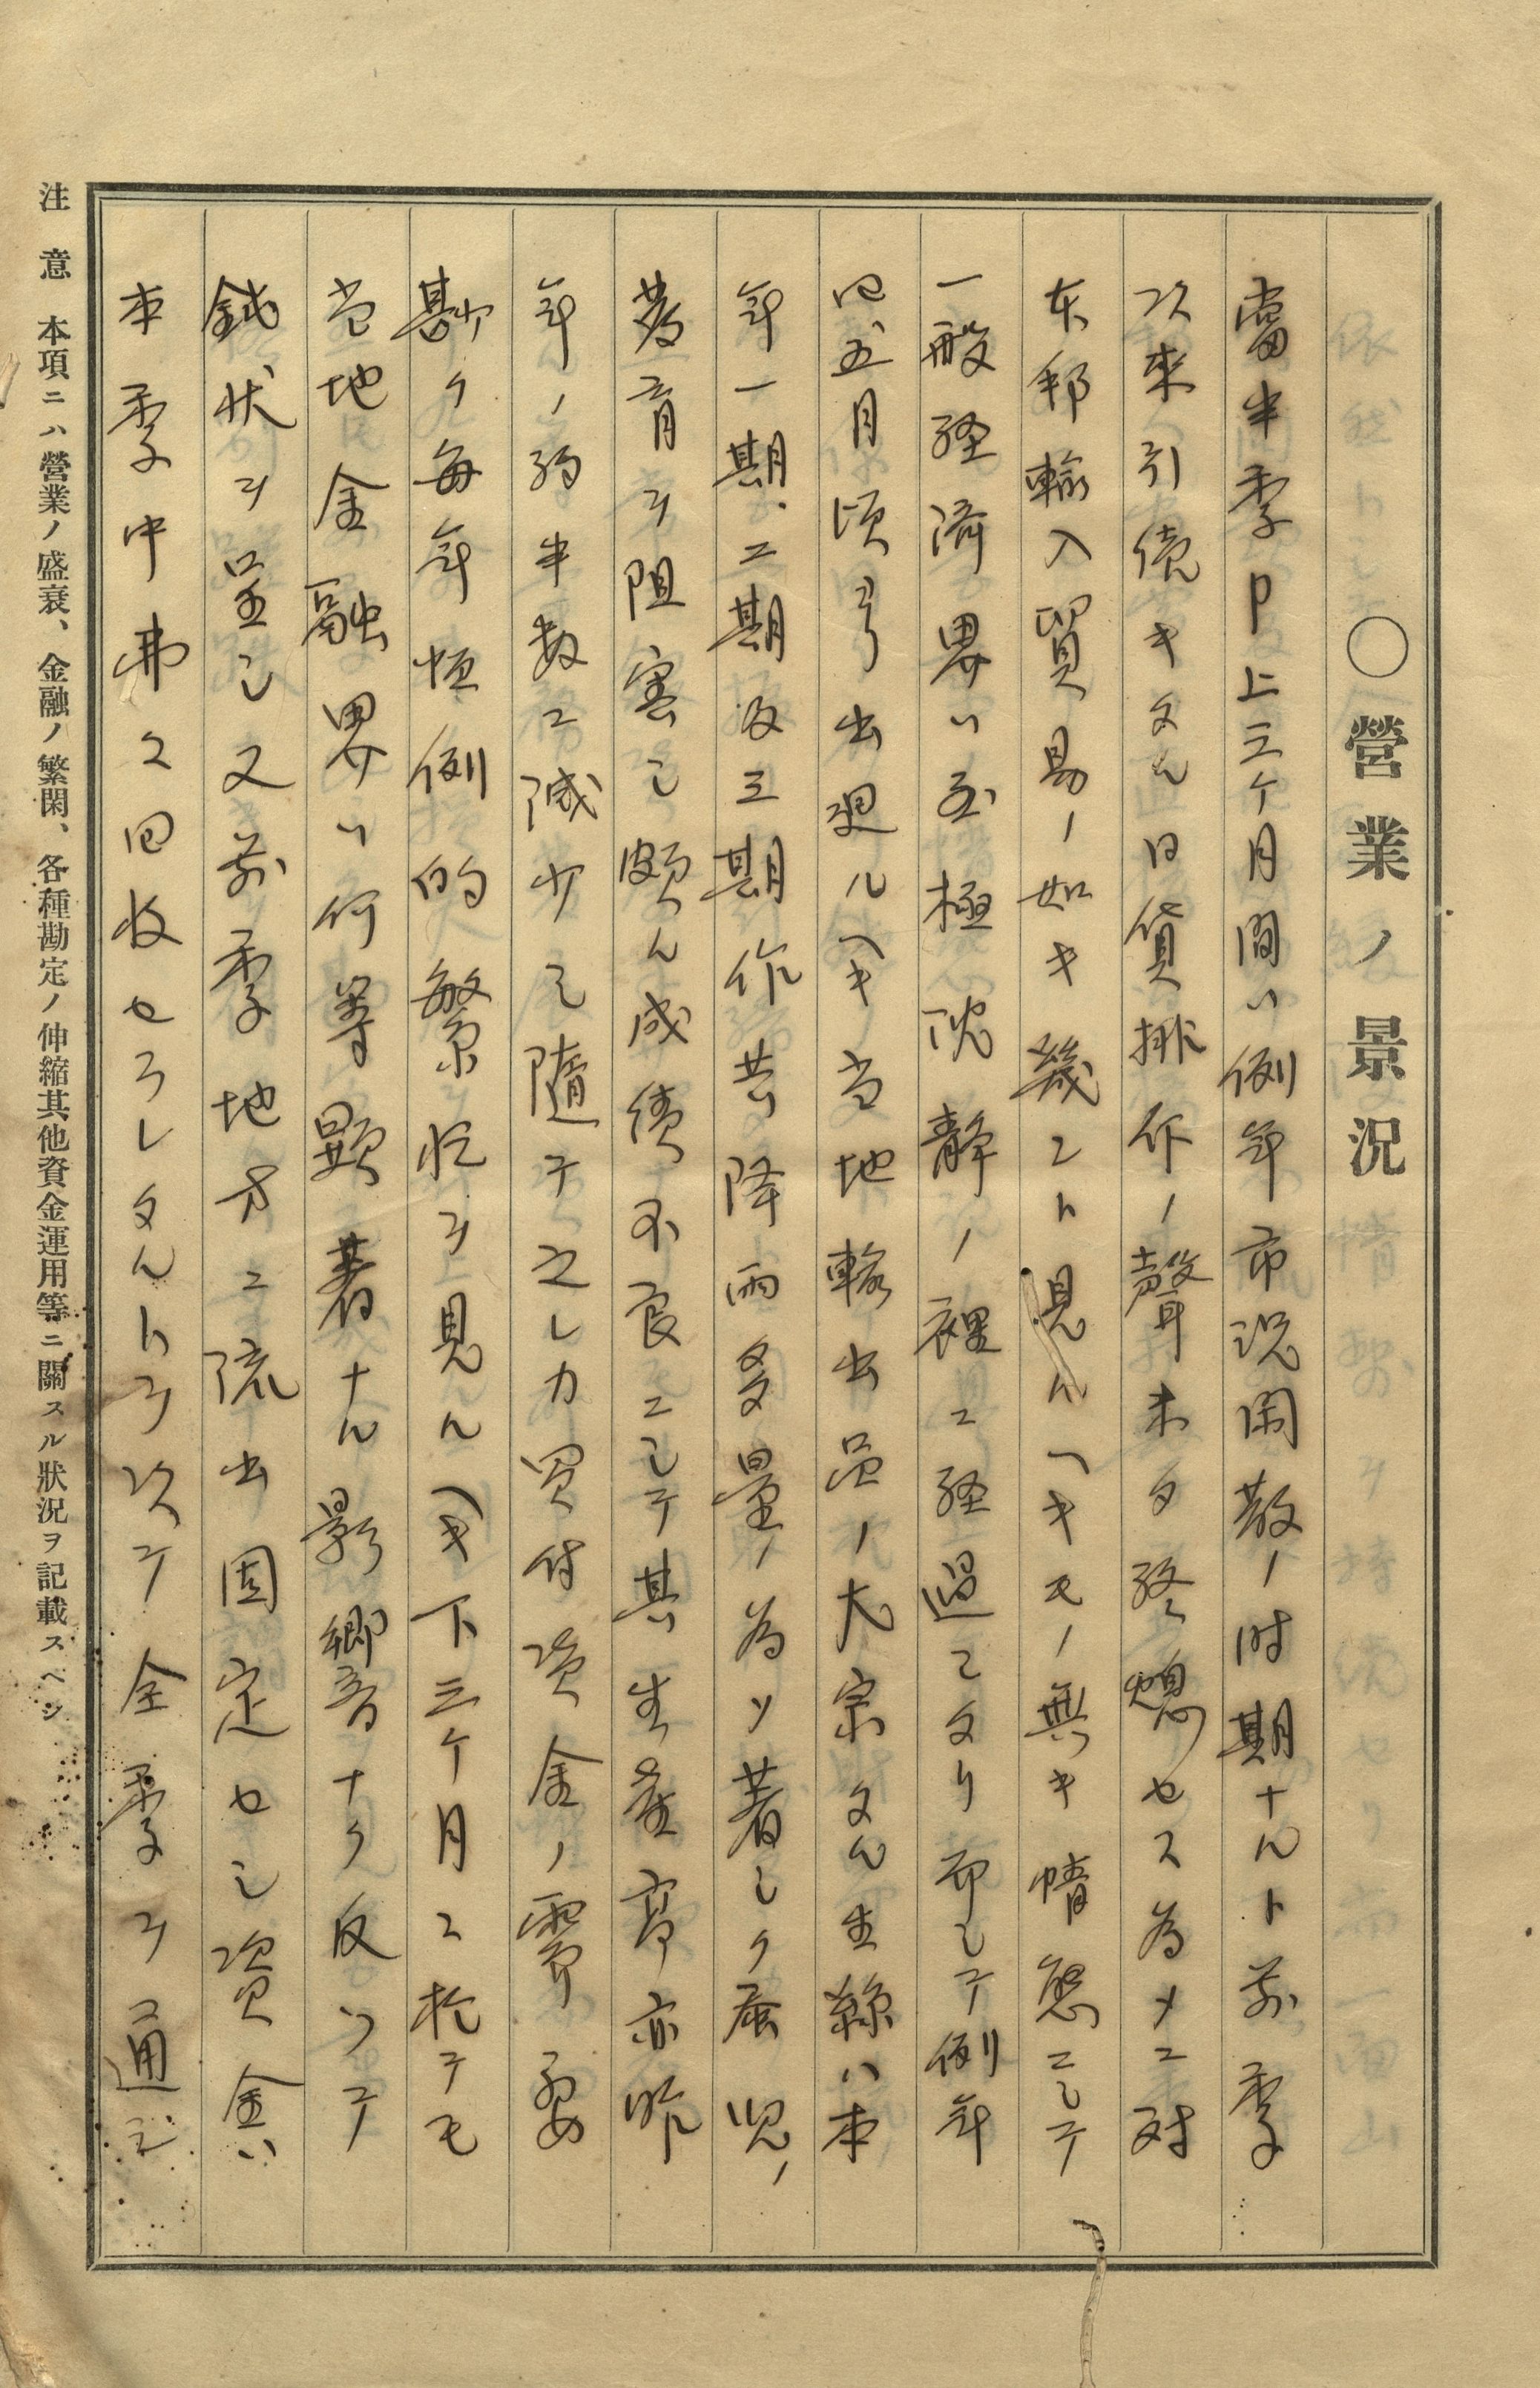 〇營業ノ景況
當半季中上三ケ月間ハ例年市況閑散ノ時期ナルト前季
以來引續キタル日貨排斥ノ聲未タ終熄セス為メニ対
本邦輸入貿易ノ如キ幾ント見ルヘキモノ無キ情態ニシテ
一般経済界ハ至極沈静ノ裡ニ経過シタリ而シテ例年
四五月頃ヨリ出廻ルヘキ当地輸出品ノ大宗タル生絲ハ本
年一期、二期及三期作共降雨多量ノ為メ著シク蚕児ノ
發育ヲ阻害シ頗ル成績不良ニシテ其生産高亦昨
年ノ約半数ニ減少シ随テ之レカ買付資金ノ需要
尠ク毎年恒例的繁忙ヲ見ルヘキ下三ケ月ニ於テモ
当地金融界ハ何等顕著ナル影響ナク反ツテ
鈍状ヲ呈シ又前季地方ニ流出固定セシ資金ハ
本季中弗々回收セラレタルトヲ以テ全季ヲ通シ
注意　本項ニハ營業ノ盛衰、金融ノ繁閑、各種勘定ノ伸縮其他資金運用等ニ關スル狀況ヲ記載スベシ